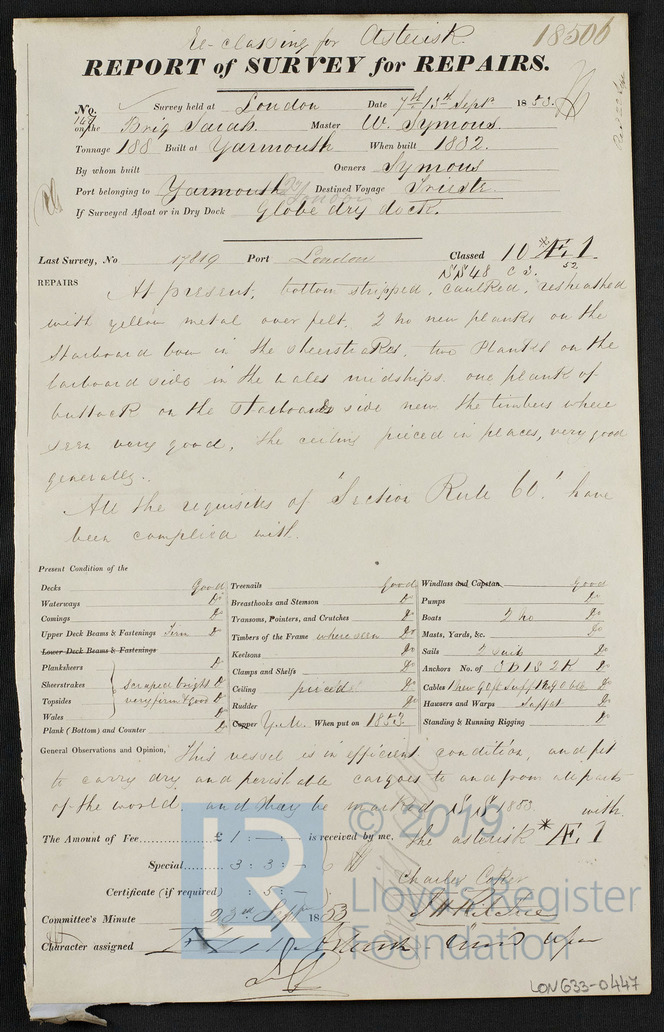 Re-classing for Asterisk. 18506
REPORT of SURVEY for REPAIRS.
No. Survey held at London Date 7th & 13th Sept 1853.
147 on the Brig Sarah. Master W. Symons.
Tonnage 188 Built at Yarmouth When built 1832.
By whom built Owners Symons
Port belonging to Yarmouth Destined Voyage Trieste
If Surveyed Afloat or in Dry Dock Globe dry dock.
Last Survey, No 17819 Port London Classed 10 * Æ 1
SS 48 52.
REPAIRS At present, bottom stripped, caulked, resheathed
with yellow metal over felt. 2 no new planks on the
Starboard bow in the sheerstrakes, two Planks on the
larboard side in the wales midships. one plank of
buttock on the starboard side new the timbers where
seen very good, the ceiling pieced in places, very good
generally.
All the requisites of 'Section Rule 60.' have
been complied with.
Present Condition of the
Decks good
Waterways Do
Comings Do
Upper Deck Beams & Fastenings Firm Do
Lower Deck Beams & Fastenings
Planksheers Do
Sheerstrakes scraped bright Do
Topsides very firm & good Do
Wales Do
Plank (Bottom) and Counter Do
Treenails good
Breasthooks and Stemson Do
Transoms, Pointers, and Crutches Do
Timbers of the Frame where seen Do
Keelsons Do
Clamps and Shelfs Do
Ceiling pieced Do
Rudder Do
Copper Y.M. When put on 1853
Windlass and Capstan good
Pumps Do
Boats 2 no Do
Masts, Yards, &c. Do
Sails 2 suit Do
Anchors No. of 3B 1S 2K Do
Cables Do
Hausers and Warps Suffct Do
Standing & Running Rigging Do
General Observations and Opinion, This vessel is in efficient condition, and fit
to carry dry and perishable cargoes to and from all parts
of the world and may be marked SS 1853 with
The Amount of Fee £ 1 : – : – is received by me, the asterisk * Æ 1
Special 3 : 3 : –
Certificate (if required) : 5 : – Charles Coker
Committee's Minute 23rd Sept 1853 J H Ritchie
Character assigned
© 2019
LR
Lloyd's Register
Foundation
LON633-0447